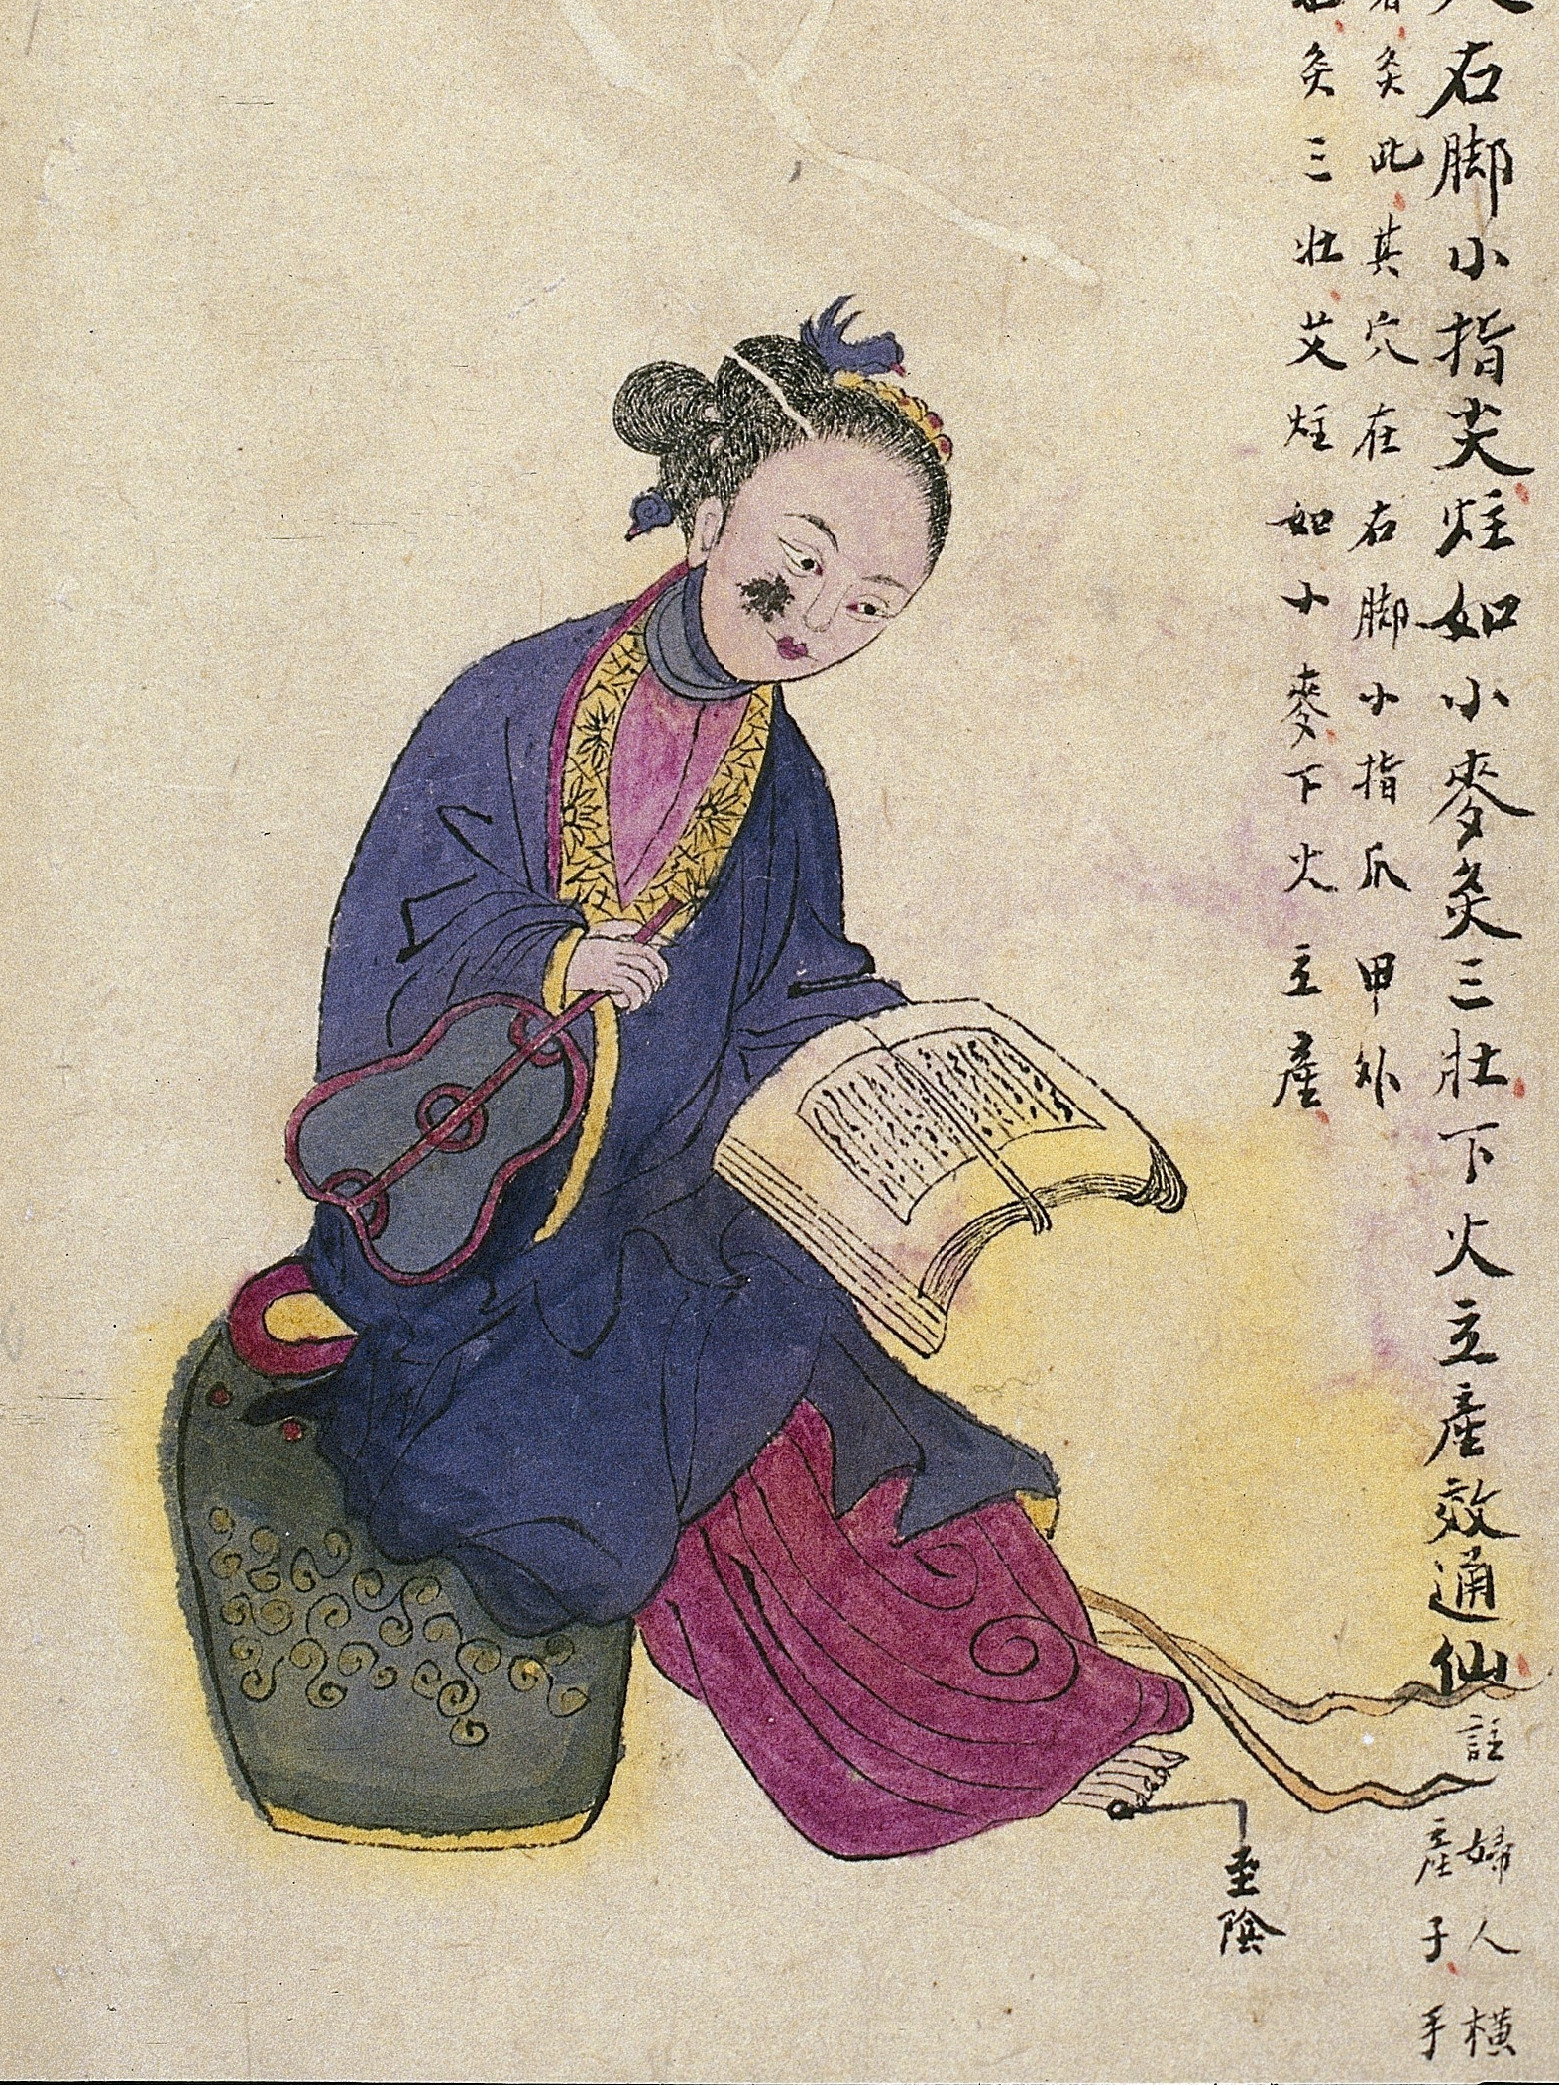 右脚小指尖炷如小麥灸三壯下火立產效通仙
註
婦人橫
產子手
者灸此其穴在右脚小指爪甲外
灸三壯艾炷如小麥下火立產
至陰